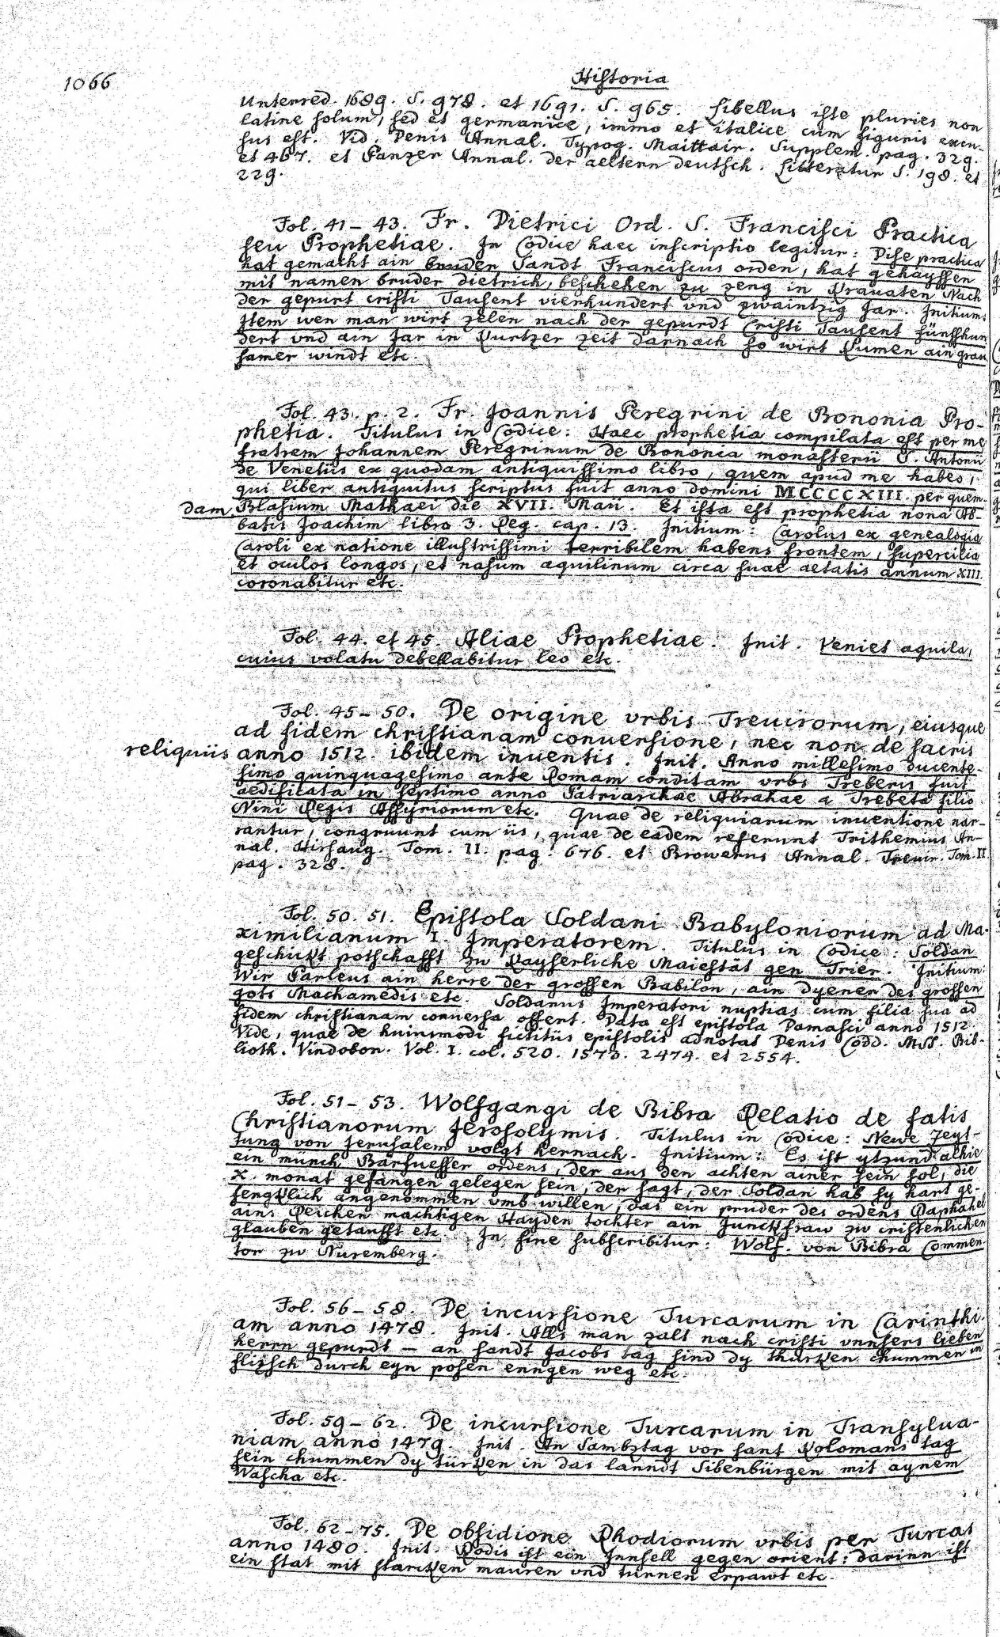 1066
Historia
Unterred. 1689. S. 978. et 1691. S. 965. Libellus iste pluries non
latine solum, sed et germanice, immo et italice cum figuris excu-
sus est. Vid. Denis Annal. Typog. Maittair. Supplem. pag. 329.
et 467. et Panzer Annal. der aeltern deutsch. Litteratur S. 198. et
229.
Fol. 41–43. Fr. Dietrici Ord. S. Francisci Practica
seu Prophetiae. In Codice haec inscriptio legitur: Dise practica
hat gemacht ain bruder Sandt Franciscus orden, hat gehayssen
mit namen bruder dietrich, beschehen zu zeng in Krauaten Nach
der gepurt cristi Tausent vierhundert vnd zwaintzig Jar. Initium:
Item wen man wirt zelen nach der gepurdt Cristi Tausent fünffhun
dert vnd ain Jar in Kurtzer zeit darnach so wirt Kumen ain grau
samer windt etc.
Fol. 43. p. 2. Fr. Joannis Peregrini de Bononia Pro-
phetia. Titulus in Codice: Haec prophetia compilata est per me
fratrem Johannem Peregrinum de Bononia monasterii S. Antonii
de Venetiis ex quodam antiquissimo libro, quem apud me habeo,
qui liber antiquitus scriptus fuit anno domini MCCCCXIII. per quem-
dam Blasium Mathaei die XVII. Maii. Et ista est prophetia nona Ab-
batis Joachim libro 3. Reg. cap. 13. Initium: Carolus ex genealogia
Caroli ex natione illustrissimi terribilem habens frontem, supercilia
et oculos longos, et nasum aquilinum circa suae aetatis annum XIII.
coronabitur etc.
Fol. 44. et 45. Aliae Prophetiae. Init. Veniet aquila,
cuius volatu debellabitur leo etc.
Fol. 45–50. De origine vrbis Treuirorum, eiusque
ad fidem christianam conuersione, nec non de sacris
reliquiis anno 1512. ibidem inuentis. Init. Anno millesimo ducente-
simo quinquagesimo ante Romam conditam vrbs Treberis fuit
aedificata in septimo anno Patriarchae Abrahae a Trebeta filio
Nini Regis Assyriorum etc. Quae de reliquiarum inuentione nar-
rantur, congruunt cum iis, quae de eadem referunt Trithemius An-
nal. Hirsaug. Tom. II. pag. 676. et Browerus Annal. Treuir. Tom. II
pag. 328.
Fol. 50. 51. Epistola Soldani Babyloniorum ad Ma-
ximilianum I. Imperatorem. Titulus in Codice: Soldan
geschickt potschafft zu Kayserliche Maiestät gen Trier. Initium:
Wir Parleus ain herre der grossen Babilon, ain dyener des grossen
gots Machamedis etc. Soldanus Imperatori nuptias cum filia sua ad
fidem christianam conuersa offert. Data est epistola Damasci anno 1512.
Vide, quae de huiusmodi fictitiis epistolis adnotat Denis Codd. MSS. Bib-
lioth. Vindobon. Vol. I. col. 520. 1573. 2474. et 2554.
Fol. 51–53. Wolfgangi de Bibra Relatio de fatis
Christianorum Jerosolymis. Titulus in Codice: Newe Zeyt-
tung von Jerusalem volgt hernach. Initium: Es ist ytzund alhie
ein münch Barfuesser ordens, der aus den achten ainer sein sol, die
X. monat gefangen gelegen sein, der sagt, der Soldan hab sy hart ge-
fengklich angenommen vmb willen, das ein pruder des ordens Raphahel
ains Reichen machtigen Hayden tochter ain Junckfraw zw cristenlichen
glauben getaufft etc. In fine subscribitur: Wolf. von Bibra Commen
tor zw Nuremberg.
Fol. 56–58. De incursione Turcarum in Carinthi-
am anno 1478. Init. Alls man zalt nach cristi vnnsers lieben
herrn gepurdt – an sandt Jacobs tag sind dy thurken chummen in
flitzsch durch eyn posen enngen weg etc.
Fol. 59–62. De incursione Turcarum in Transylua-
niam anno 1479. Init. An Sambztag vor sant Kolomans tag
sein chummen dy türken in das lanndt Sibenbürgen mit aynem
Wascha etc.
Fol. 62–75. De obsidione Rhodiorum vrbis per Turcas
anno 1480. Init. Rodis ist ein Innsell gegen orient: darinn ist
ein stat mit starcken mauren vnd turnen erpawt etc.